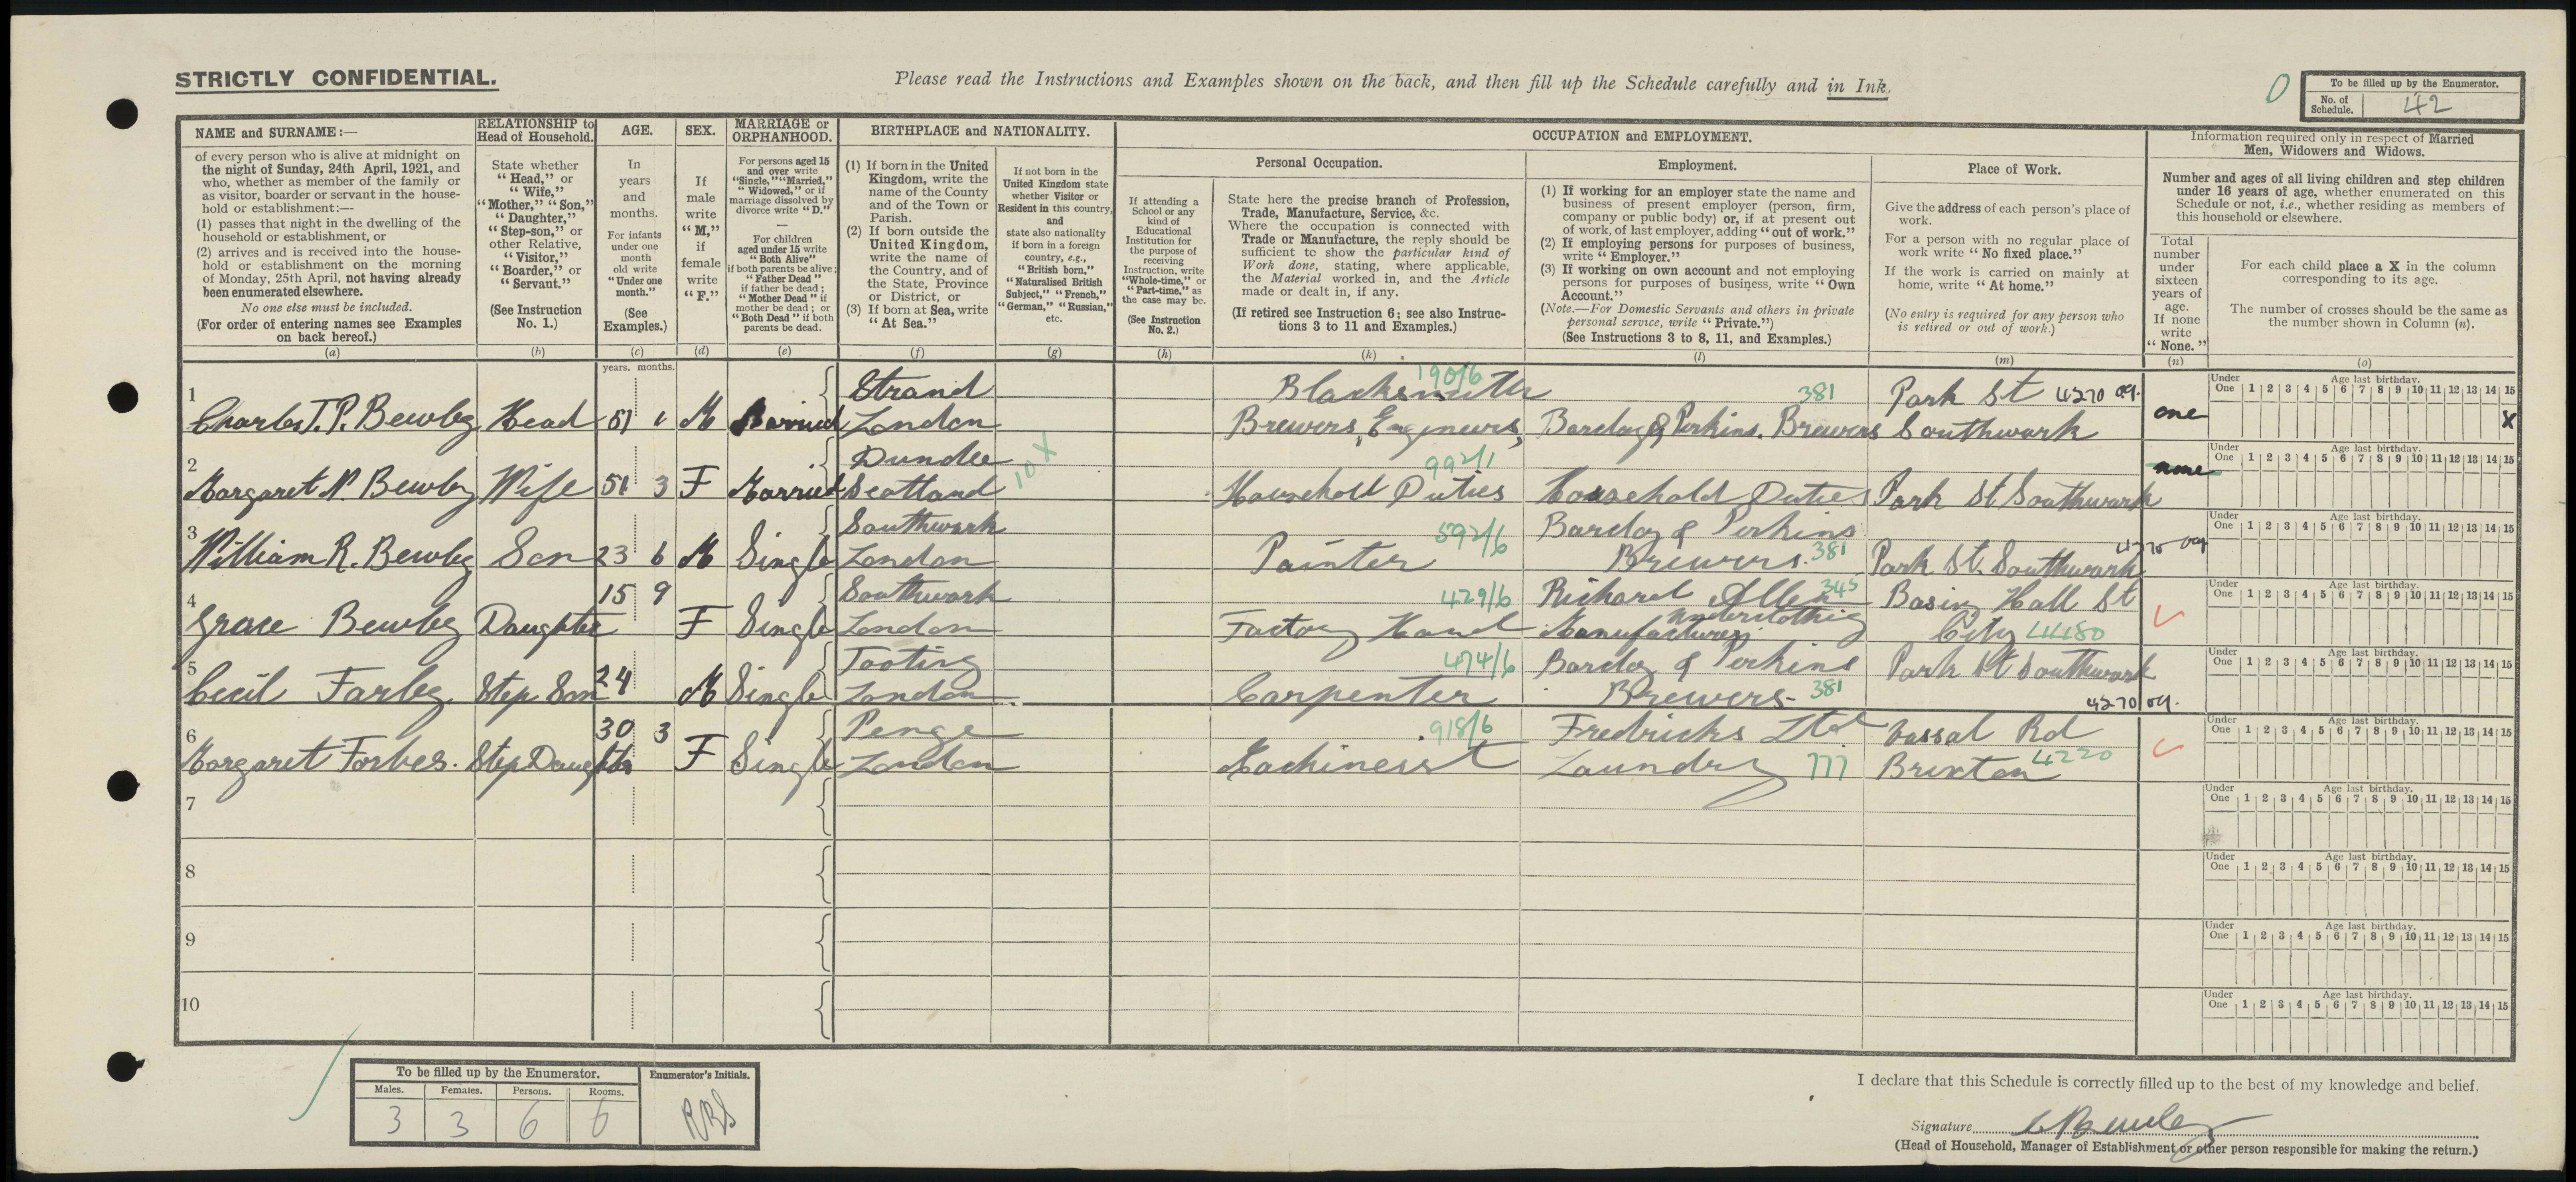 STRICTLY CONFIDENTIAL.
Please read the Instructions and Examples shown on the back, and then fill up the Schedule carefully and in Ink.
0
To be filled up by the Enumerator.
No. of Schedule. 42
NAME and SURNAME:—
of every person who is alive at midnight on
the night of Sunday, 24th April, 1921, and
who, whether as member of the family or
as visitor, boarder or servant in the house-
hold or establishment:—
(1) passes that night in the dwelling of the
household or establishment, or
(2) arrives and is received into the house-
hold or establishment on the morning
of Monday, 25th April, not having already
been enumerated elsewhere.
No one else must be included.
(For order of entering names see Examples
on back hereof.)
(a)
RELATIONSHIP to
Head of Household.
State whether
"Head," or
"Wife,"
"Mother," "Son,"
"Daughter,"
"Step-son," or
other Relative,
"Visitor,"
"Boarder," or
"Servant."
(See Instruction
No. 1.)
(b)
AGE.
In
years
and
months.
For infants
under one
month
old write
"Under one
month."
(See
Examples.)
(c)
years. months.
SEX.
If
male
write
"M,"
if
female
write
"F."
(d)
MARRIAGE or
ORPHANHOOD.
For persons aged 15
and over write
"Single," "Married,"
"Widowed," or if
marriage dissolved by
divorce write "D."
—
For children
aged under 15 write
"Both Alive"
if both parents be alive;
"Father Dead"
if father be dead;
"Mother Dead" if
mother be dead; or
"Both Dead" if both
parents be dead.
(e)
BIRTHPLACE and NATIONALITY.
(1) If born in the United
Kingdom, write the
name of the County
and of the Town or
Parish.
(2) If born outside the
United Kingdom,
write the name of
the Country, and of
the State, Province
or District, or
(3) If born at Sea, write
"At Sea."
(f)
If not born in the
United Kingdom state
whether Visitor or
Resident in this country,
and
state also nationality
if born in a foreign
country, e.g.,
"British born,"
"Naturalised British
Subject," "French,"
"German," "Russian,"
etc.
(g)
OCCUPATION and EMPLOYMENT.
Personal Occupation.
If attending a
School or any
kind of
Educational
Institution for
the purpose of
receiving
Instruction, write
"Whole-time," or
"Part-time," as
the case may be.
(See Instruction
No. 2.)
(h)
State here the precise branch of Profession,
Trade, Manufacture, Service, &c.
Where the occupation is connected with
Trade or Manufacture, the reply should be
sufficient to show the particular kind of
Work done, stating, where applicable,
the Material worked in, and the Article
made or dealt in, if any.
(If retired see Instruction 6; see also Instruc-
tions 3 to 11 and Examples.)
(k)
Employment.
(1) If working for an employer state the name and
business of present employer (person, firm,
company or public body) or, if at present out
of work, of last employer, adding "out of work."
(2) If employing persons for purposes of business,
write "Employer."
(3) If working on own account and not employing
persons for purposes of business, write "Own
Account."
(Note.—For Domestic Servants and others in private
personal service, write "Private.")
(See Instructions 3 to 8, 11, and Examples.)
(l)
Place of Work.
Give the address of each person's place of
work.
For a person with no regular place of
work write "No fixed place."
If the work is carried on mainly at
home, write "At home."
(No entry is required for any person who
is retired or out of work.)
(m)
Information required only in respect of Married
Men, Widowers and Widows.
Number and ages of all living children and step children
under 16 years of age, whether enumerated on this
Schedule or not, i.e., whether residing as members of
this household or elsewhere.
Total
number
under
sixteen
years of
age.
If none
write
"None."
(n)
For each child place a X in the column
corresponding to its age.
The number of crosses should be the same as
the number shown in Column (n).
(o)
1
Strand Blacksmith 190/6 381 Park St 4270
Charles T. P. Bewley Head 51 1 M Married London Brewers Engineers Barclay & Perkins. Brewers Southwark one X
Under One Age last birthday. 1 2 3 4 5 6 7 8 9 10 11 12 13 14 15
2
Dundee 10X 992/1
Margaret Bewley Wife 51 3 F Married Scotland Household Duties Household Duties Park St Southwark none
Under One Age last birthday. 1 2 3 4 5 6 7 8 9 10 11 12 13 14 15
3
Southwark 592/6 Barclay & Perkins
William R. Bewley Son 23 6 M Single London Painter Brewers. 381 Park St. Southwark 4270
Under One Age last birthday. 1 2 3 4 5 6 7 8 9 10 11 12 13 14 15
4
15 9 Southwark 429/6 Richard Allen 345 Basing Hall St
Grace Bewley Daughter F Single London Factory Hand Underclothing Manufacturer City 4480
Under One Age last birthday. 1 2 3 4 5 6 7 8 9 10 11 12 13 14 15
5
24 Tooting 474/6 Barclay & Perkins Park St Southwark
Cecil Farley Step Son M Single London Carpenter Brewers 381 4270
Under One Age last birthday. 1 2 3 4 5 6 7 8 9 10 11 12 13 14 15
6
30 3 Penge 918/6 Fredricks Ltd Vassal Rd
Margaret Forbes. Step Daughter F Single London Machinesst Laundry 777 Brixton 4220
Under One Age last birthday. 1 2 3 4 5 6 7 8 9 10 11 12 13 14 15
7
Under One Age last birthday. 1 2 3 4 5 6 7 8 9 10 11 12 13 14 15
8
Under One Age last birthday. 1 2 3 4 5 6 7 8 9 10 11 12 13 14 15
9
Under One Age last birthday. 1 2 3 4 5 6 7 8 9 10 11 12 13 14 15
10
Under One Age last birthday. 1 2 3 4 5 6 7 8 9 10 11 12 13 14 15
To be filled up by the Enumerator.
Males. Females. Persons. Rooms.
3 3 6 6
Enumerator's Initials.
I declare that this Schedule is correctly filled up to the best of my knowledge and belief.
Signature Bewley
(Head of Household, Manager of Establishment or other person responsible for making the return.)